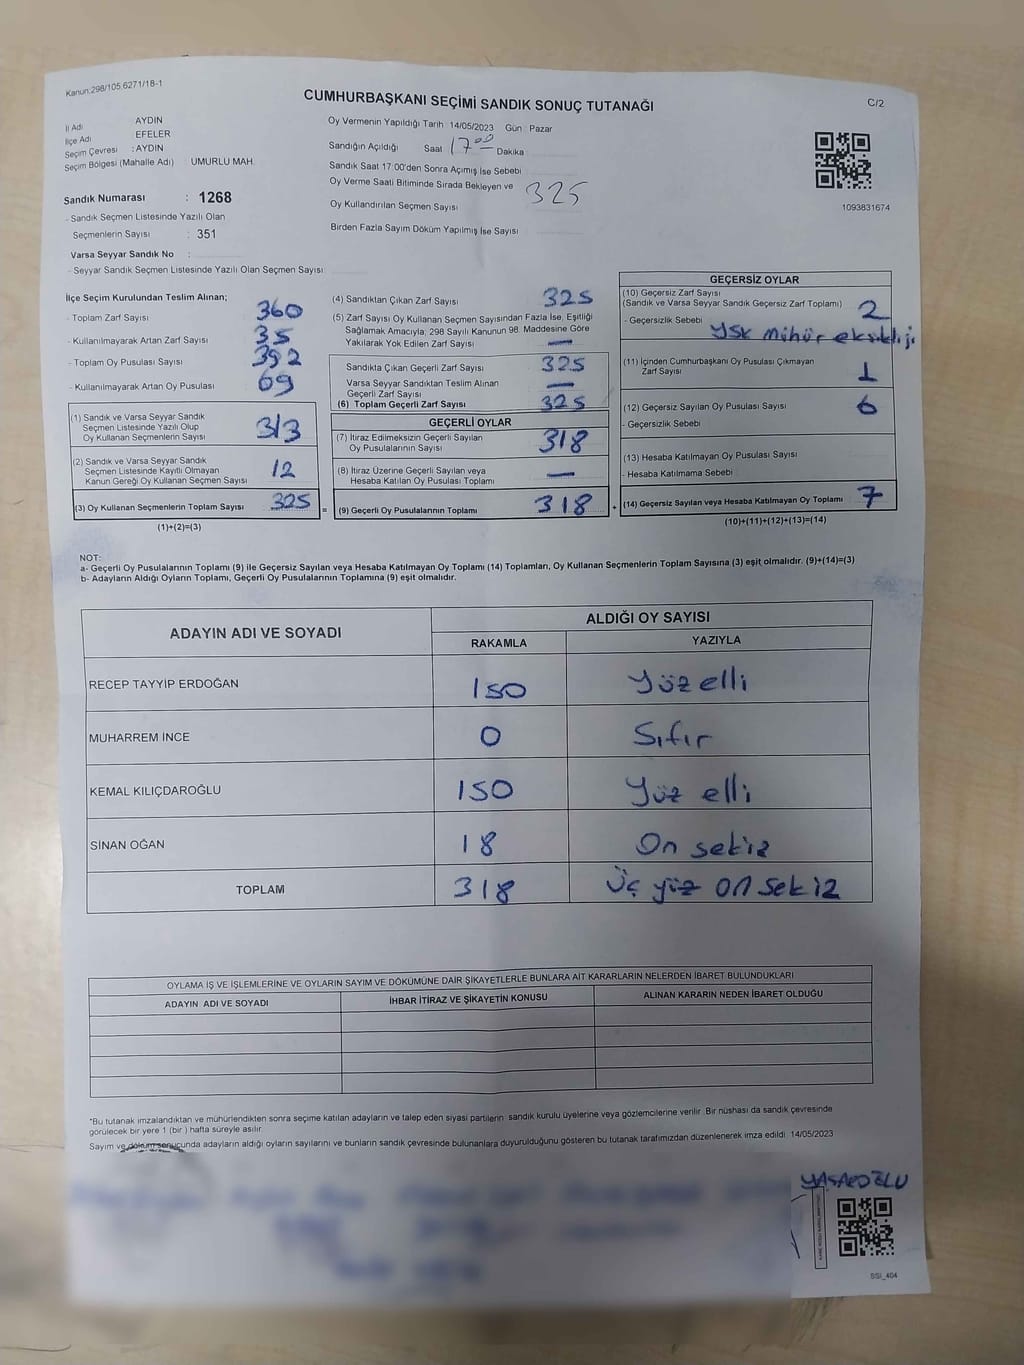 Kanun.298/105.6271/18-1
CUMHURBAŞKANI SEÇİMİ SANDIK SONUÇ TUTANAĞI
C/2
İl Adı AYDIN
İlçe Adı EFELER
Seçim Çevresi : AYDIN
Seçim Bölgesi (Mahalle Adı) : UMURLU MAH.
Sandık Numarası : 1268
- Sandık Seçmen Listesinde Yazılı Olan
Seçmenlerin Sayısı : 351
Varsa Seyyar Sandık No :
- Seyyar Sandık Seçmen Listesinde Yazılı Olan Seçmen Sayısı
Oy Vermenin Yapıldığı Tarih 14/05/2023 Gün Pazar
Sandığın Açıldığı Saat 17 00 Dakika
Sandık Saat 17:00'den Sonra Açımış İse Sebebi
Oy Verme Saati Bitiminde Sırada Bekleyen ve
Oy Kullandırılan Seçmen Sayısı 325
Birden Fazla Sayım Döküm Yapılmış İse Sayısı
1093831674
İlçe Seçim Kurulundan Teslim Alınan;
- Toplam Zarf Sayısı 360
- Kullanılmayarak Artan Zarf Sayısı 35
- Toplam Oy Pusulası Sayısı 392
- Kullanılmayarak Artan Oy Pusulası 69
(1) Sandık ve Varsa Seyyar Sandık
Seçmen Listesinde Yazılı Olup
Oy Kullanan Seçmenlerin Sayısı 313
(2) Sandık ve Varsa Seyyar Sandık
Seçmen Listesinde Kayıtlı Olmayan
Kanun Gereği Oy Kullanan Seçmen Sayısı 12
(3) Oy Kullanan Seçmenlerin Toplam Sayısı 325 =
(1)+(2)=(3)
(4) Sandıktan Çıkan Zarf Sayısı 325
(5) Zarf Sayısı Oy Kullanan Seçmen Sayısından Fazla İse, Eşitliği
Sağlamak Amacıyla, 298 Sayılı Kanunun 98. Maddesine Göre
Yakılarak Yok Edilen Zarf Sayısı —
Sandıkta Çıkan Geçerli Zarf Sayısı 325
Varsa Seyyar Sandıktan Teslim Alınan
Geçerli Zarf Sayısı —
(6) Toplam Geçerli Zarf Sayısı 325
GEÇERLİ OYLAR
(7) İtiraz Edilmeksizin Geçerli Sayılan
Oy Pusulalarının Sayısı 318
(8) İtiraz Üzerine Geçerli Sayılan veya
Hesaba Katılan Oy Pusulası Toplamı —
(9) Geçerli Oy Pusulalarının Toplamı 318 +
GEÇERSİZ OYLAR
(10) Geçersiz Zarf Sayısı
(Sandık ve Varsa Seyyar Sandık Geçersiz Zarf Toplamı) 2
- Geçersizlik Sebebi YSK mühür eksikliği
(11) İçinden Cumhurbaşkanı Oy Pusulası Çıkmayan
Zarf Sayısı 1
(12) Geçersiz Sayılan Oy Pusulası Sayısı 6
- Geçersizlik Sebebi
(13) Hesaba Katılmayan Oy Pusulası Sayısı
- Hesaba Katılmama Sebebi
(14) Geçersiz Sayılan veya Hesaba Katılmayan Oy Toplamı 7
(10)+(11)+(12)+(13)=(14)
NOT:
a- Geçerli Oy Pusulalarının Toplamı (9) ile Geçersiz Sayılan veya Hesaba Katılmayan Oy Toplamı (14) Toplamları, Oy Kullanan Seçmenlerin Toplam Sayısına (3) eşit olmalıdır. (9)+(14)=(3)
b- Adayların Aldığı Oyların Toplamı, Geçerli Oy Pusulalarının Toplamına (9) eşit olmalıdır.
ADAYIN ADI VE SOYADI ALDIĞI OY SAYISI
RAKAMLA YAZIYLA
RECEP TAYYİP ERDOĞAN 150 Yüz elli
MUHARREM İNCE 0 Sıfır
KEMAL KILIÇDAROĞLU 150 Yüz elli
SİNAN OĞAN 18 On sekiz
TOPLAM 318 Üç yüz on sekiz
OYLAMA İŞ VE İŞLEMLERİNE VE OYLARIN SAYIM VE DÖKÜMÜNE DAİR ŞİKAYETLERLE BUNLARA AİT KARARLARIN NELERDEN İBARET BULUNDUKLARI
ADAYIN ADI VE SOYADI İHBAR İTİRAZ VE ŞİKAYETİN KONUSU ALINAN KARARIN NEDEN İBARET OLDUĞU
*Bu tutanak imzalandıktan ve mühürlendikten sonra seçime katılan adayların ve talep eden siyasi partilerin sandık kurulu üyelerine veya gözlemcilerine verilir. Bir nüshası da sandık çevresinde
görülecek bir yere 1 (bir ) hafta süreyle asılır.
Sayım ve döküm sonucunda adayların aldığı oyların sayılarını ve bunların sandık çevresinde bulunanlara duyurulduğunu gösteren bu tutanak tarafımızdan düzenlenerek imza edildi. 14/05/2023
YAŞAROĞLU
SSI_404